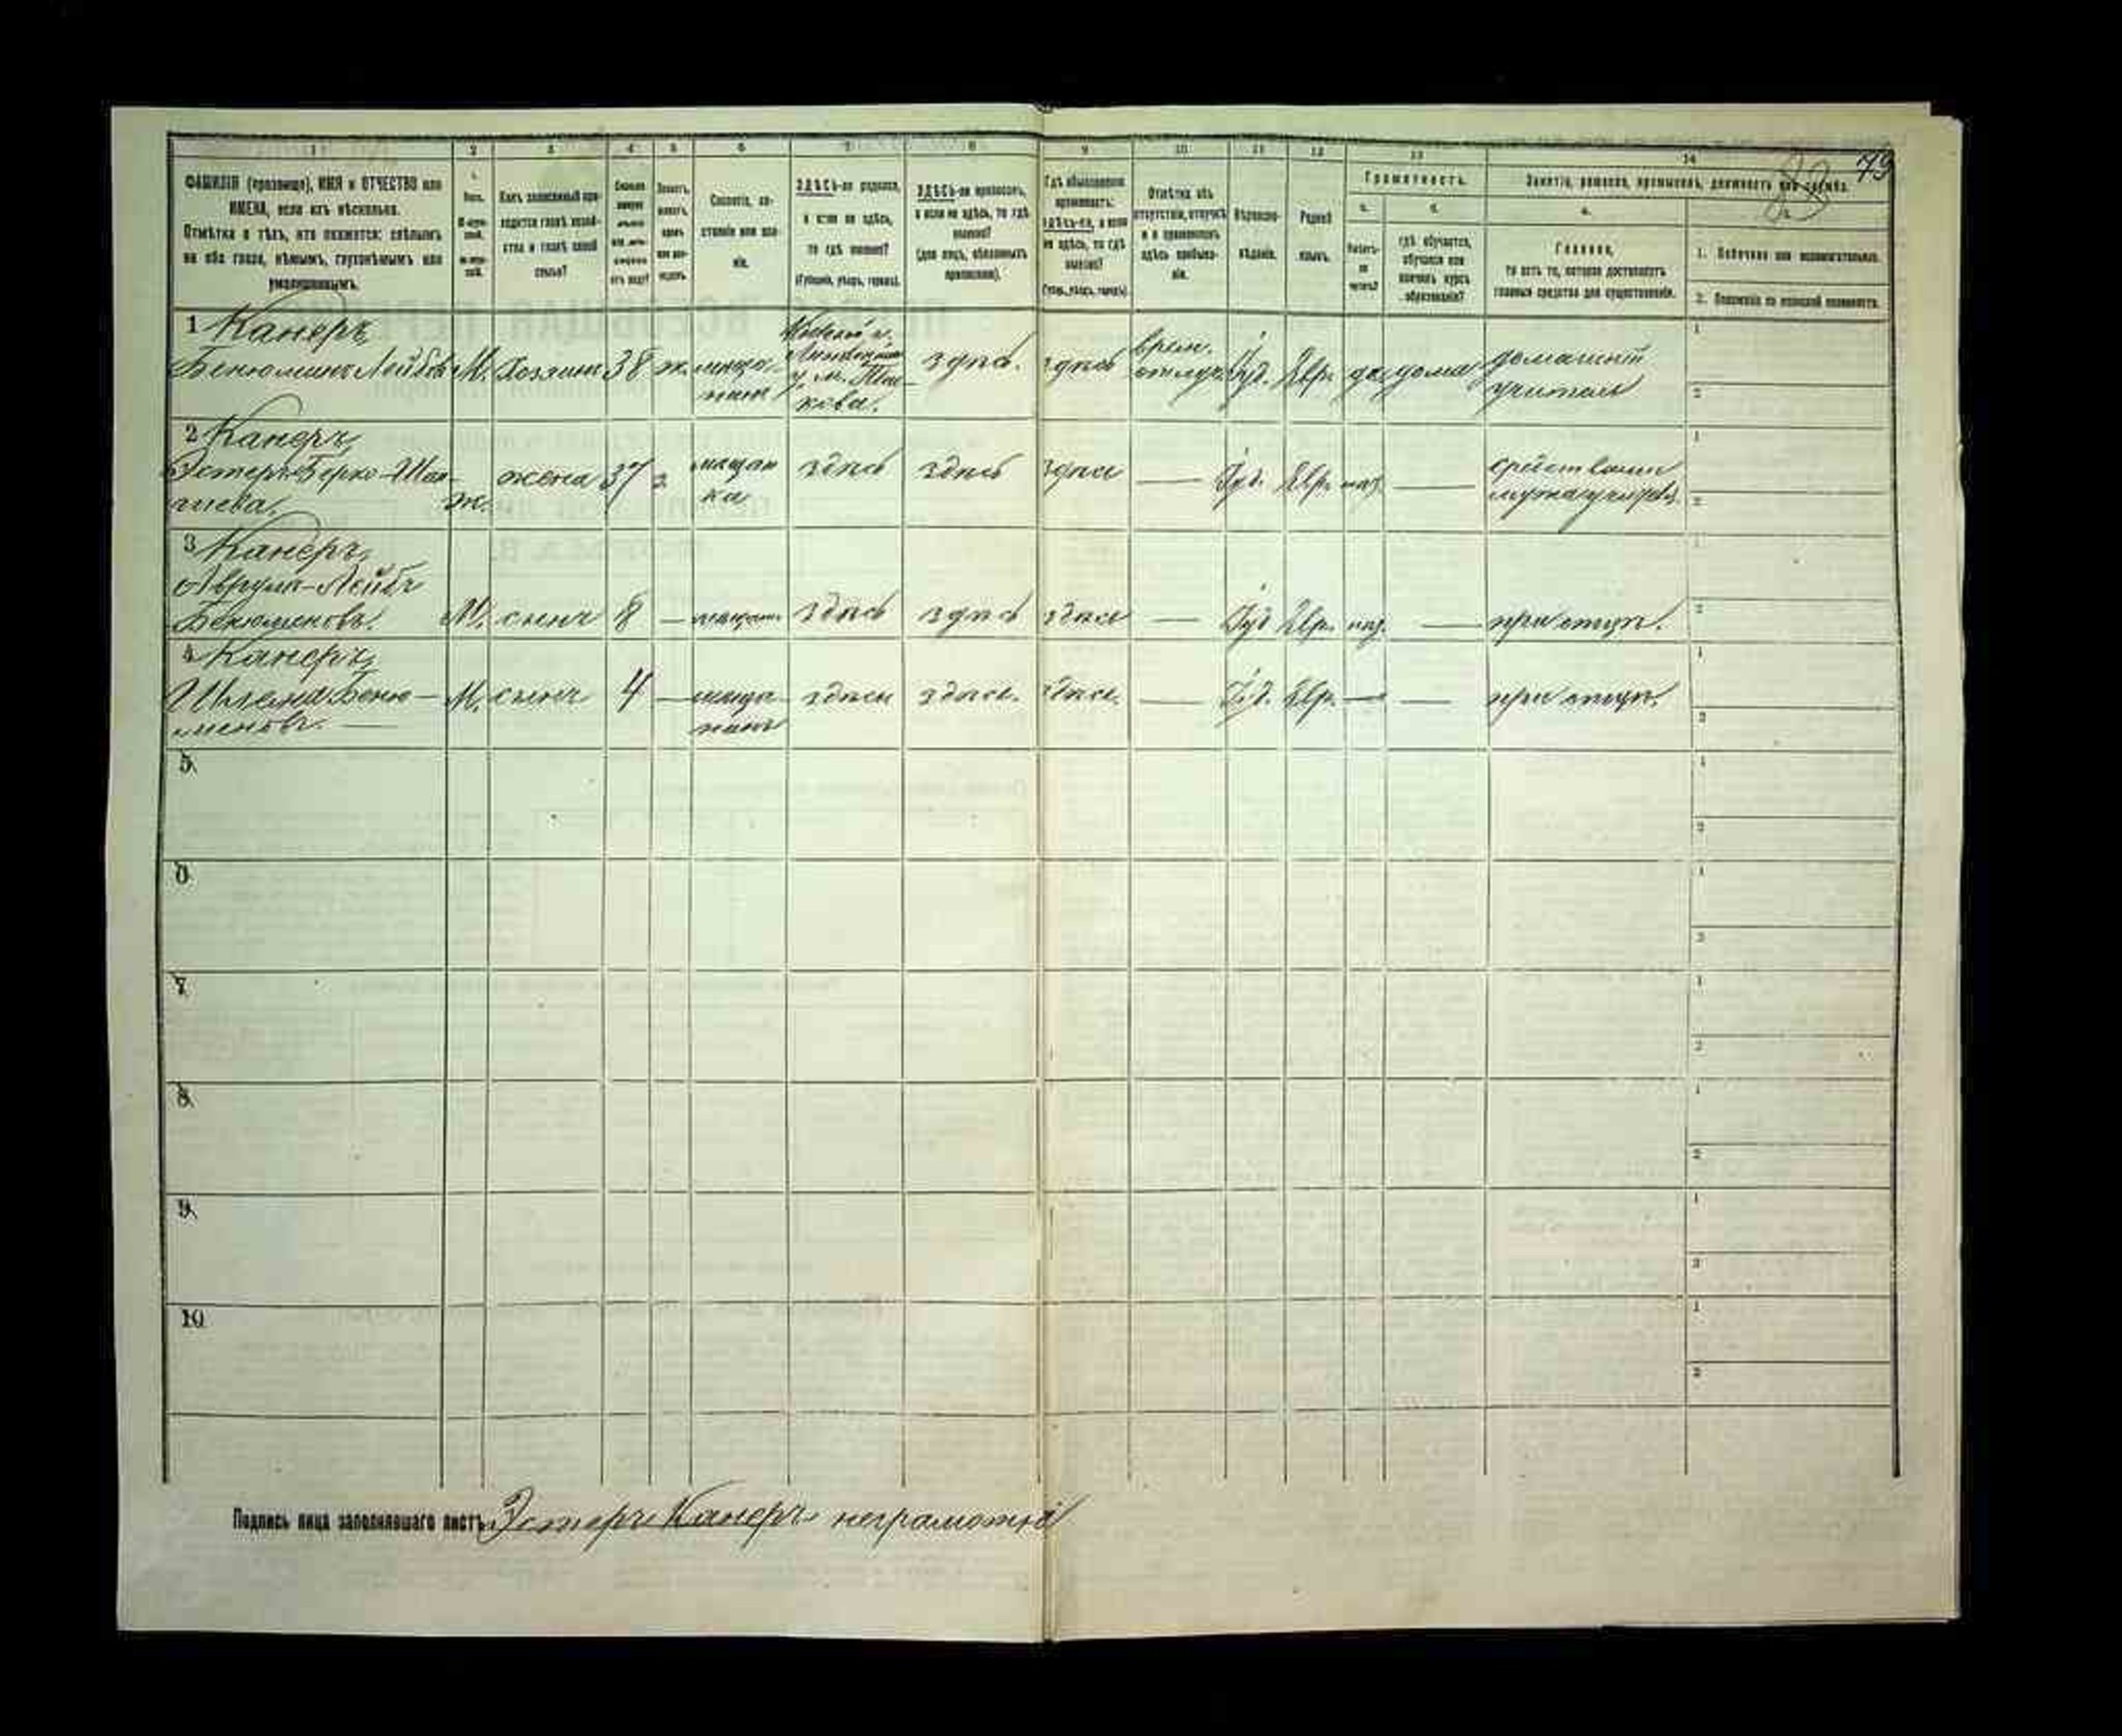 1 2 3 4 5 6 7 8 9 10 11 12 13 14
79
83
ФАМИЛІЯ (прозвище), ИМЯ и ОТЧЕСТВО или
ИМЕНА, если ихъ нѣсколько.
Отмѣтка о тѣхъ, кто окажется: слѣпымъ
на оба глаза, нѣмымъ, глухонѣмымъ или
умалишеннымъ.
Полъ.
Какъ записанный при-
ходится главѣ хозяй-
ства и главѣ своей
семьи?
Сословіе, со-
стояніе или зва-
ніе.
ЗДѢСЬ-ли родился,
а если не здѣсь,
то гдѣ именно?
(Губернія, уѣздъ, городъ).
ЗДѢСЬ-ли приписанъ,
а если не здѣсь, то гдѣ
именно?
(для лицъ, обязанныхъ
припискою).
Гдѣ обыкновенно
проживаетъ:
здѣсь-ли, а если
не здѣсь, то гдѣ
именно?
(Губ., уѣздъ, городъ).
Отмѣтка объ
отсутствіи, отлучкѣ
и о временномъ
здѣсь пребыва-
ніи.
Вѣроиспо-
вѣданіе.
Родной
языкъ.
Грамотность.
а. б.
Умѣетъ-
ли
читать?
гдѣ обучается,
обучался или
кончилъ курсъ
образованія?
Занятіе, ремесло, промыселъ, должность или служба.
а.
Главное,
то есть то, которое доставляетъ
главныя средства для существованія.
1. Побочное или вспомогательное.
2. Положеніе по воинской повинности.
1 Канеръ,
Бенюминъ Лейбовъ М. Хозяинъ 38 ж. мѣща-
нинъ
у. м. Пис-
кова.
здѣсь. здѣсь
врем.
отлуч.
Іуд. Евр. да дома
домашній
учитель
2 Канеръ,
Эстеръ Берко-Шая-
гиева.
ж. жена 37 з. мѣщан
ка
здѣсь здѣсь здѣсь — Іуд. Евр. —
средствами
мужа
3 Канеръ,
Аврумъ-Лейбъ
Бенюминовъ. М. сынъ 8 — здѣсь здѣсь здѣсь — Іуд Евр. — при отцѣ.
4 Канеръ,
Шлема Беню-
миновъ. —
М. сынъ 4 — мѣща-
нинъ
здѣсь здѣсь. здѣсь. — Іуд. Евр. — — при отцѣ.
5
6
7
8
9
10
Подпись лица заполнявшаго листъ Эстеръ Канеръ неграмотна